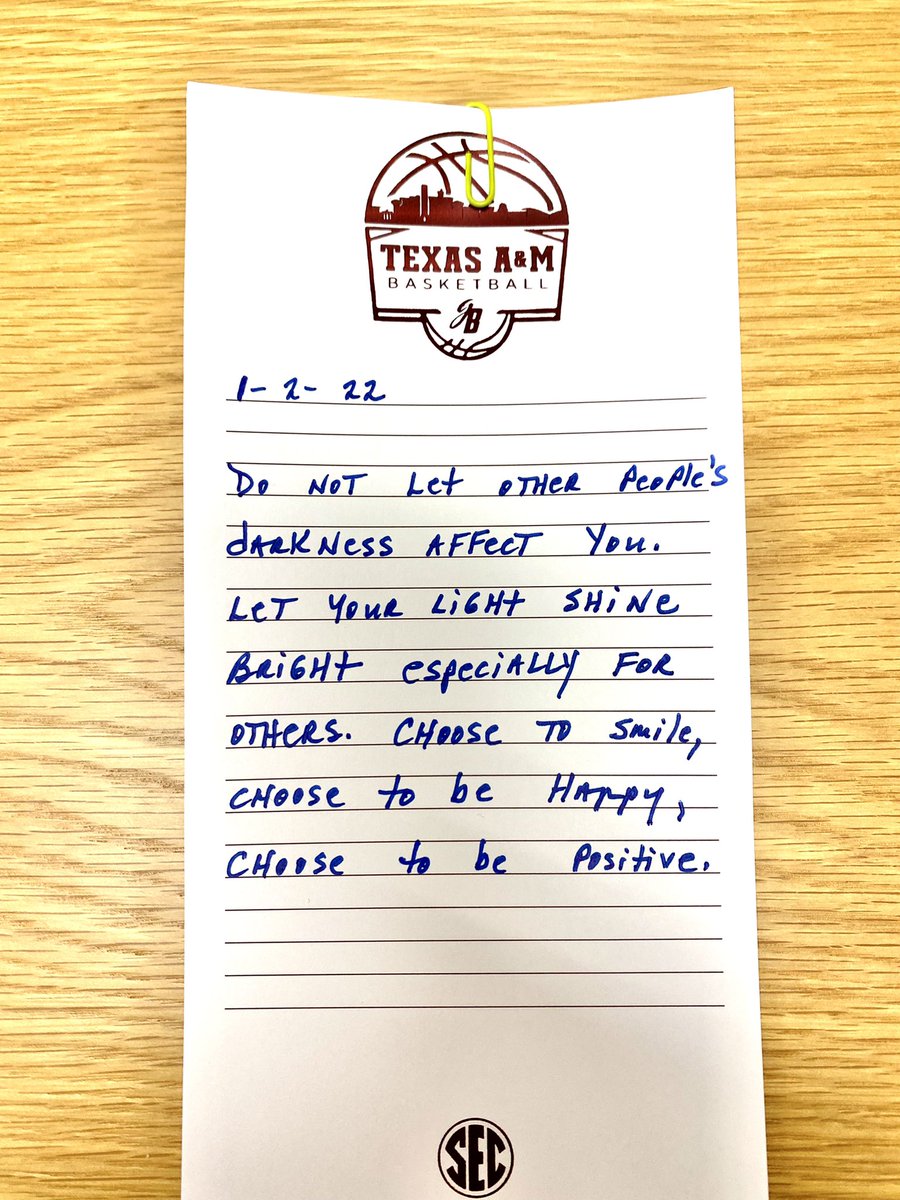 TEXAS A&M
BASKETBALL
gB
1-2-22
Do NOT Let OTHER People's
dARKNESS AFFECT You.
LET YOUR LIGHT SHINE
BRIGHT especiALLY FOR
OTHERS. CHOOSE TO Smile,
CHOOSE to be HAppy,
CHOOSE to be Positive.
SEC